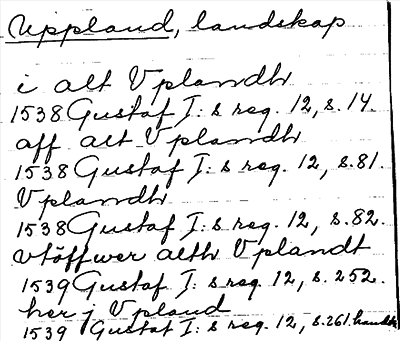 Uppland, landskap
i alt Vplandh
1538 Gustaf I:s reg. 12, s. 14.
aff alt Vplandh
1538 Gustaf I:s reg. 12, s. 81.
Vplandh
1538 Gustaf I:s reg. 12, s. 82.
vtöffwer alth Vplandt
1539 Gustaf I:s reg. 12, s. 252.
her j Vpland
1539 Gustaf I:s reg. 12, s. 261.